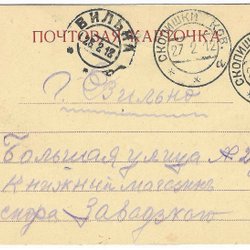 ПОЧТОВАЯ КАРТОЧКА
ВИЛЬНА
26.2.12
СКОПИШКИ КОВ.
27 2 12
СКОПИШ
г. Вильно
Большая улица
Книжный магазинъ
Завадзкого